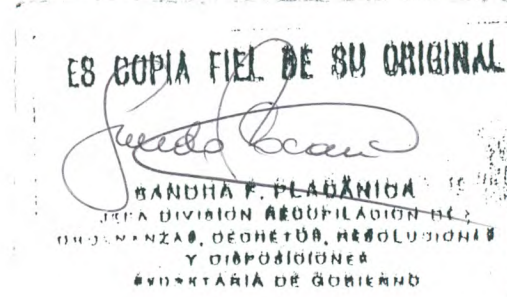 ES COPIA FIEL DE SU ORIGINAL
SANDRA F. PLACÁNICA
JEFA DIVISIÓN RECOPILACIÓN DE
ORDENANZAS, DECRETOS, RESOLUCIONES
Y DISPOSICIONES
SECRETARÍA DE GOBIERNO